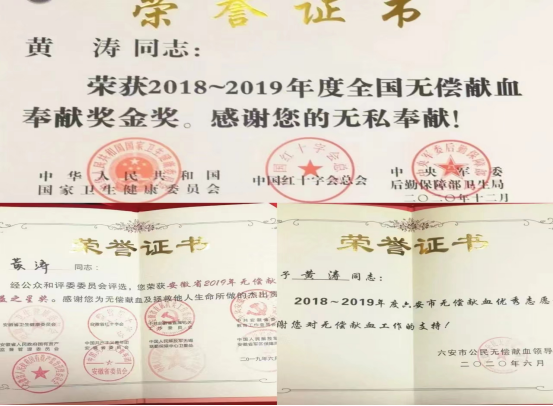 荣誉证书
黄 涛 同志:
荣获2018~2019年度全国无偿献血
奉献奖金奖。感谢您的无私奉献!
中华人民共和国
国家卫生健康委员会
中国红十字会总会
中央军委
后勤保障部卫生局
二〇二〇年十二月
荣誉证书
黄涛 同志:
经公众和评委委员会评选,您荣获安徽省2019年无偿献
之星奖。感谢您为无偿献血及拯救他人生命所做的杰出贡
二〇一九年六
荣誉证书
予 黄涛 同志:
2018-2019年度六安市无偿献血优秀志愿
谢您对无偿献血工作的支持!
六安市公民无偿献血领导
二〇二〇年六月